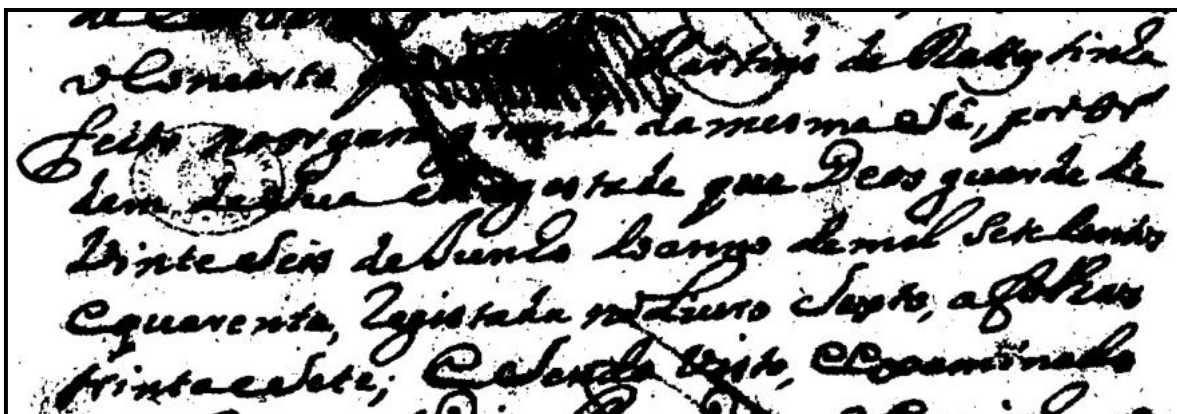 oConserto Martins de
feito noorgam grande damesma Sé, poror
dem de Sua Magestade que Deos guarde de
Vinte eSeis de Junho doanno demil Setecentos
equarenta, Registada noLiuro Sexto, afolhas
trinta eSete; eSendo Visto, eexaminado